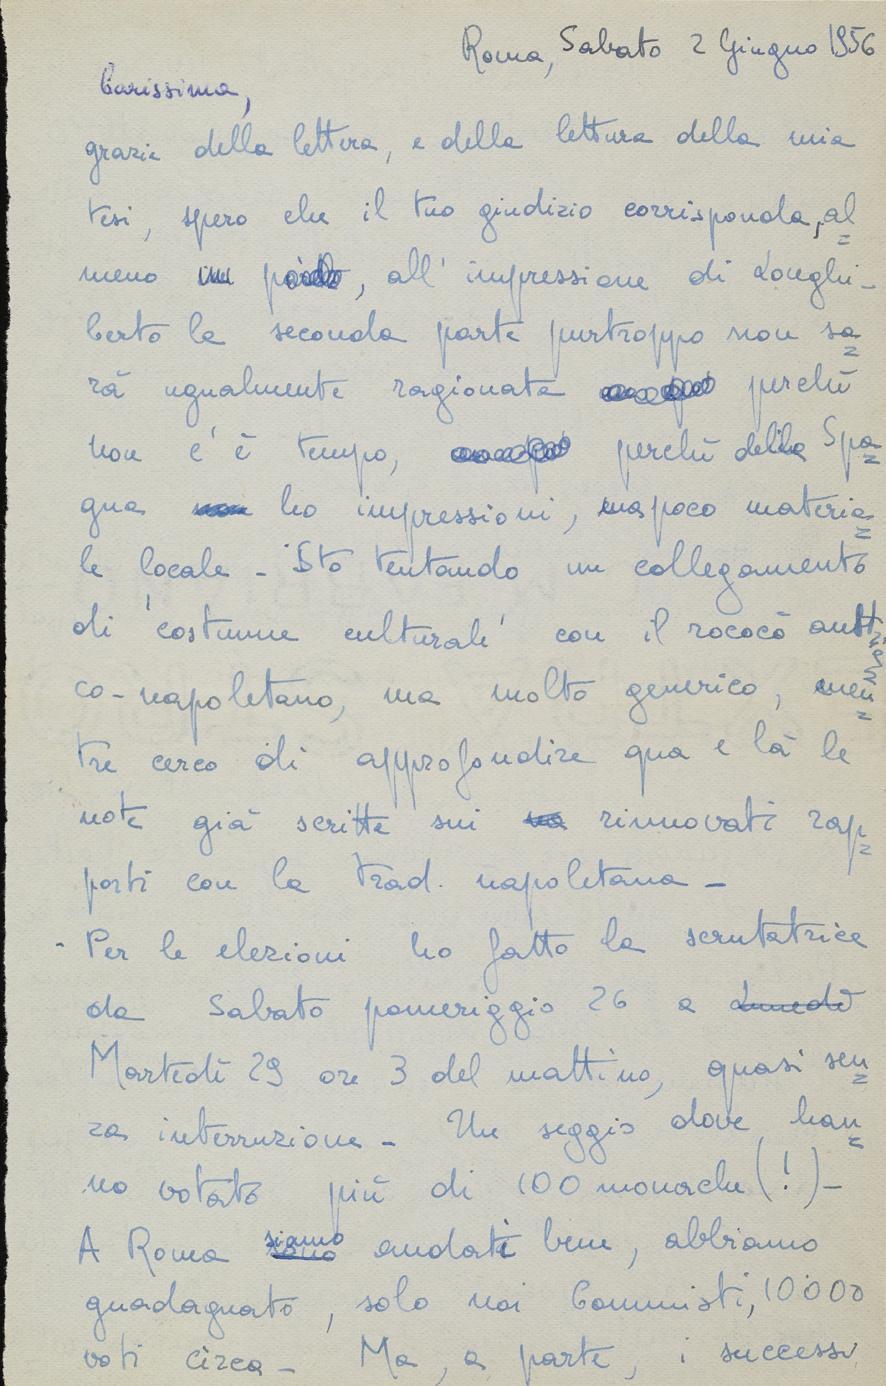 Roma, Sabato 2 Giugno 1956
Carissima,
grazie della lettera, e della lettura della mia
tesi, spero che il tuo giudizio corrisponda, al=
meno, all'impressione di Longhi -
Certo la seconda parte purtroppo non sa=
rà ugualmente ragionata perchè
non c'è tempo, perchè della Spa=
gna ho impressioni, ma poco materia=
le locale - Sto tentando un collegamento
di 'costume culturale' con il rococò
co-napoletano, ma molto generico, men=
tre cerco di approfondire qua e là le
note già scritte sui rinnovati rap=
porti con la trad. napoletana -
- Per le elezioni ho fatto la scrutatrice
da Sabato pomeriggio 26 a Lunedì
Martedì 29 ore 3 del mattino, quasi sen=
za interruzione - Un seggio dove han=
no votato più di 100 monache (!) -
A Roma siamo andati bene, abbiamo
guadagnato, solo noi Comunisti, 10000
voti circa - Ma, a parte, i successi